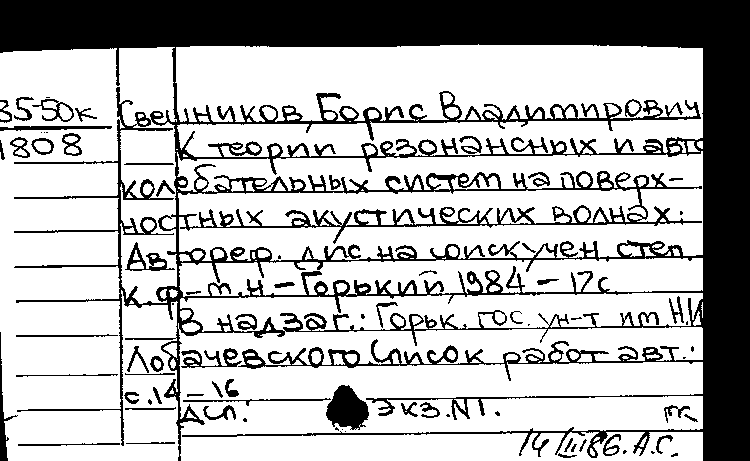 85-50к Свешников, Борис Владимирович
1808 К теории резонансных и авто
колебательных систем на поверх-
ностных акустических волнах:
Автореф. дис. на соиск. учен. степ.
к. ф.-м. н. - Горький, 1984 - 17 с.
В надзаг.: Горьк. гос. ун-т им. Н.И
Лобачевского. Список работ авт.:
с. 14 - 16
Дсп. Экз. N 1.
14/III 86. А.С.